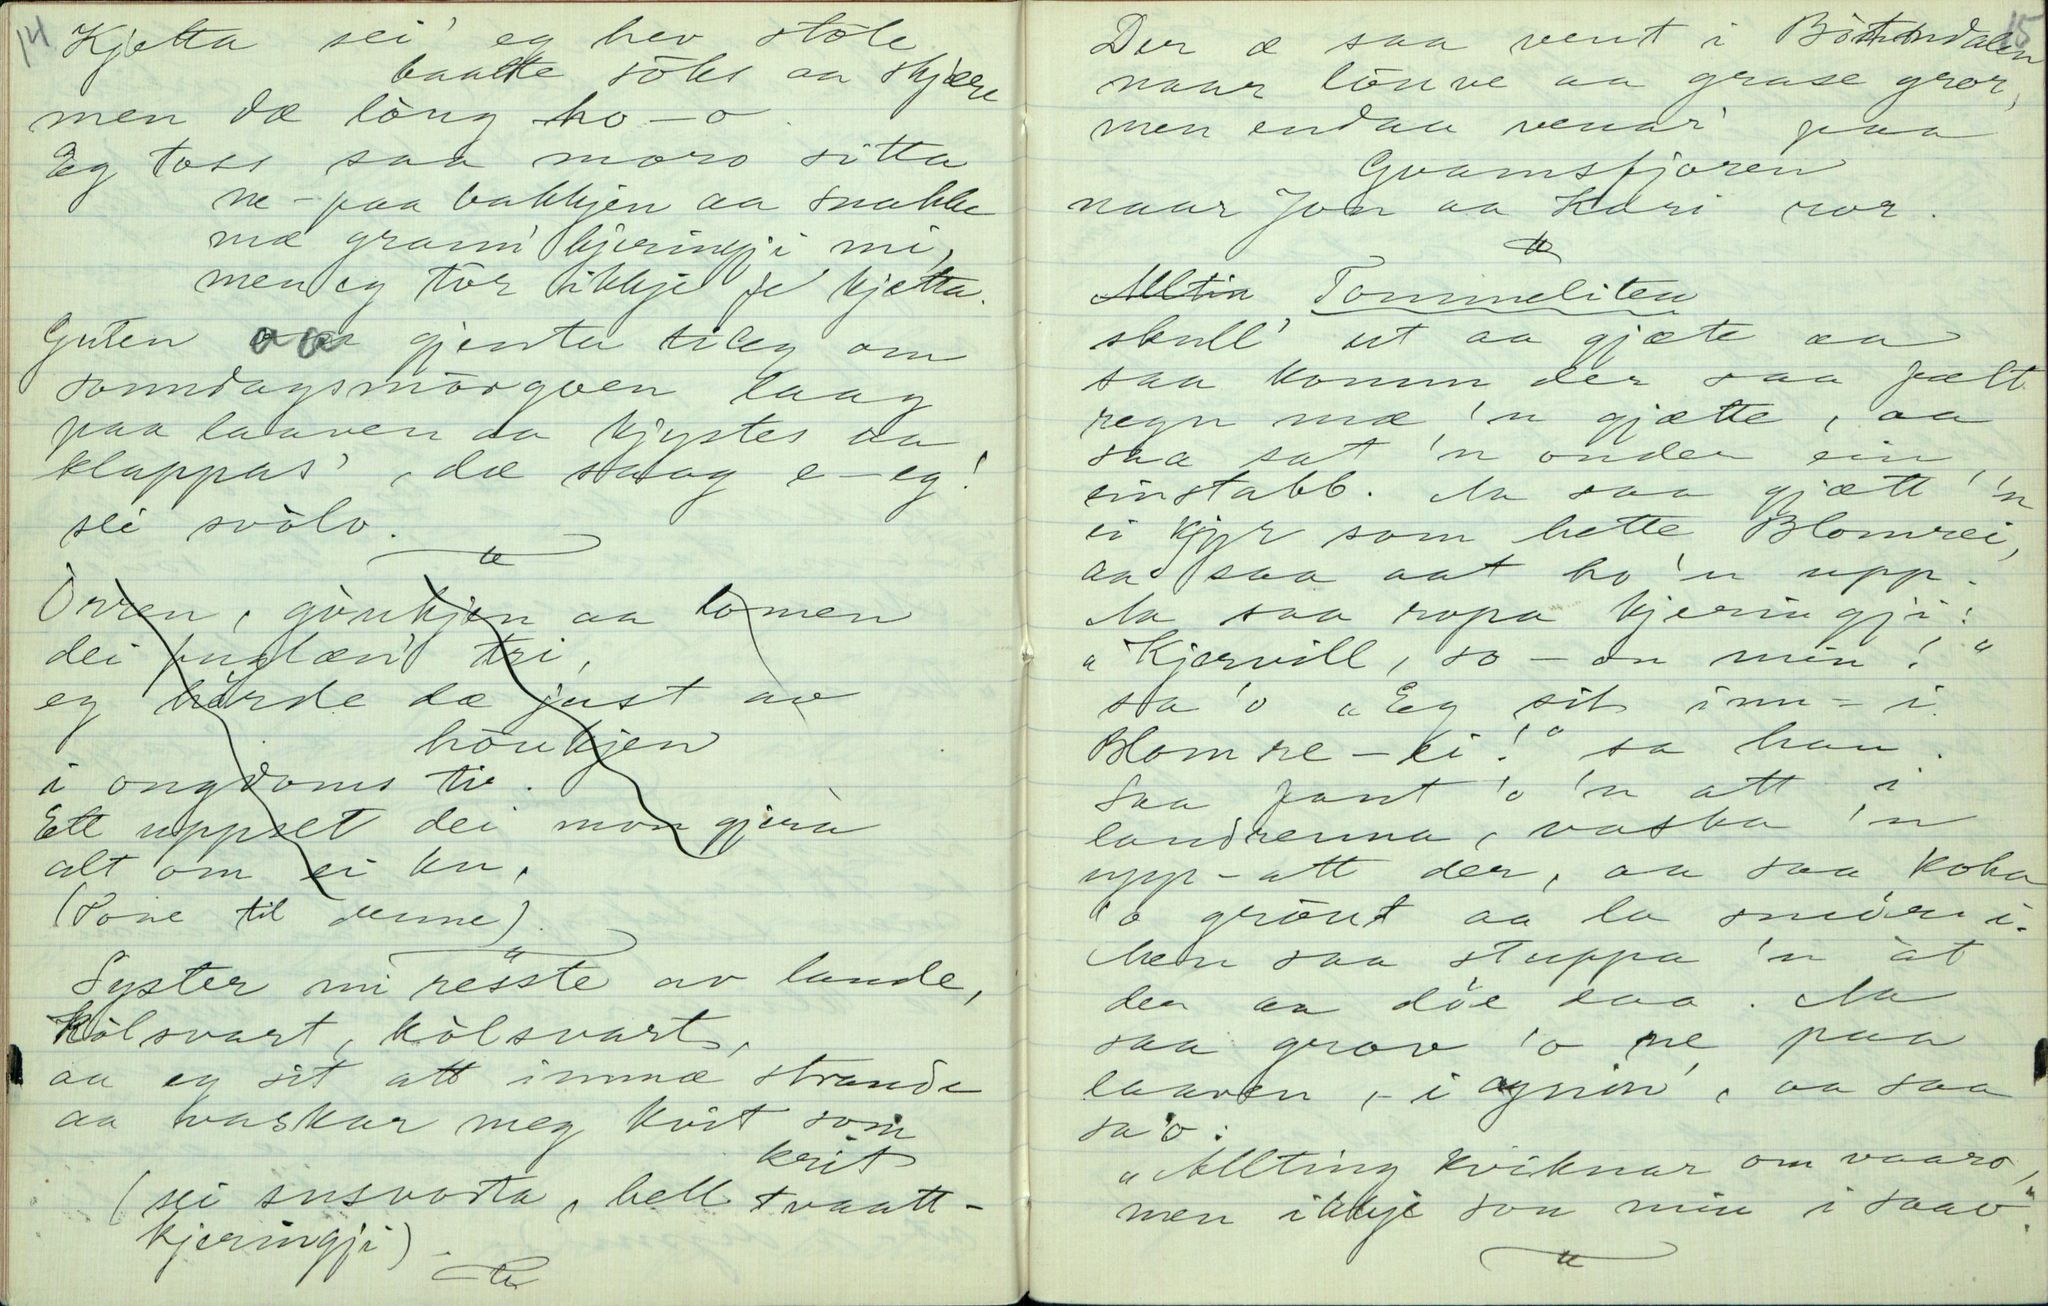 14
Kjetta sei' eg hev stöle
baatte söks aa skjære
men dæ löng ho-o.
Eg toss saa moro sitta
ne-paa bakkjen aa snakke
mæ grann' kjeringji mi,
men eg tör ikkje fe' kjetta.
Guten aa gjenta tileg om
sonndagsmörgoen laag
paa laaven aa kjystes aa
klappas', dæ saag e-eg!
sei svölo.
Örren, gönkjen aa lomen
dei fuglæn' tri,
eg hörde dæ just av
hönkjen
i ongdoms ti.
Ett uppset dei mon gjera
alt om ei ku.
(Tone til denne)
Syster mi resste av lande,
Kölsvart, kölsvart,
aa eg sit att immæ strande
aa vaskar meg kvit som
krit
(sei susvorta, hell tvaatt-
kjeringji).
15
Der æ saa vent i Böllandalen
naar lönve aa grase gror,
men endaa venar' paa
Gvamsfjoren
naar Jon aa Kari ror.
Alltin Tommeliten
skull' ut aa gjæte aa
saa komm der saa fælt
regn mæ 'n gjætte, aa
saa sat 'n onder ein
einstabb. Aa saa gjætt' 'n
ei kjyr som hette Blomrei,
aa saa aat ho 'n upp.
Aa saa ropa kjeringji:
"Kjervill, so-on min!"
sa 'o "Eg sit inn-i
Blomre-ei!" sa han.
Saa fant 'o 'n att i
landrenna, vaska 'n
upp-att der, aa saa koka
'o grönt aa la smör i.
Men saa stuppa 'n åt
der aa döe daa. Aa
saa grov 'o ne paa
laaven, - i agnin', aa saa
sa'o:
"Allting kviknar om vaaro,
men ikkje son min i saao".